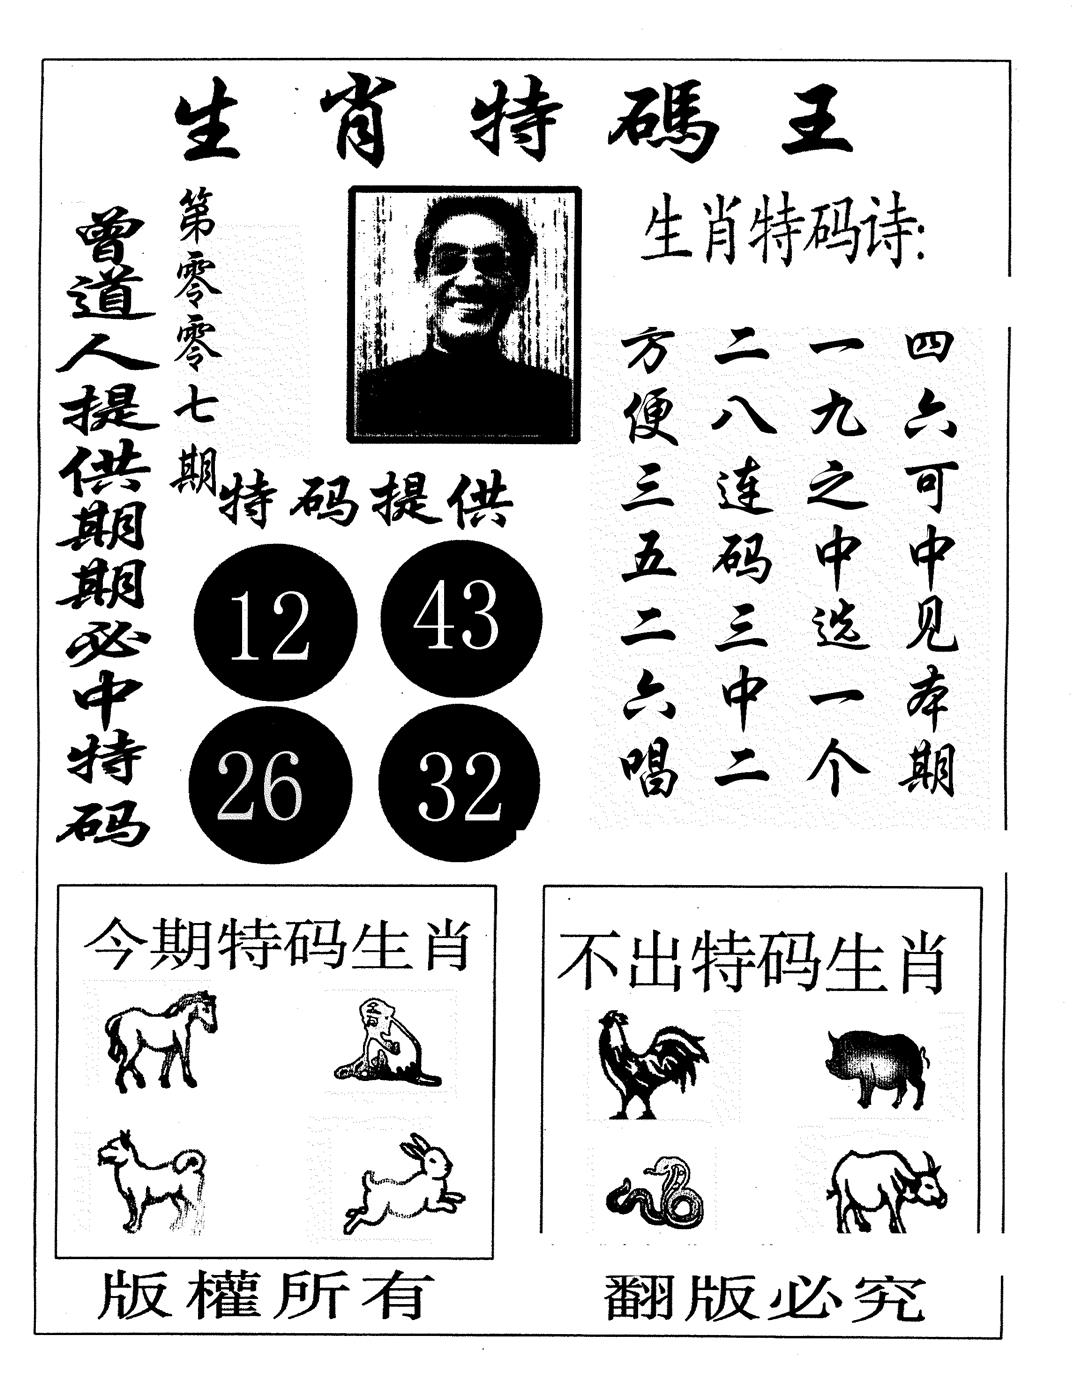 生肖特碼王
曾道人提供期期必中特码
第零零七期
特码提供
12 43
26 32
生肖特码诗:
四六可中见本期
一九之中选一个
二八连码三中二
方便三五二六唱
今期特码生肖
不出特码生肖
版權所有
翻版必究